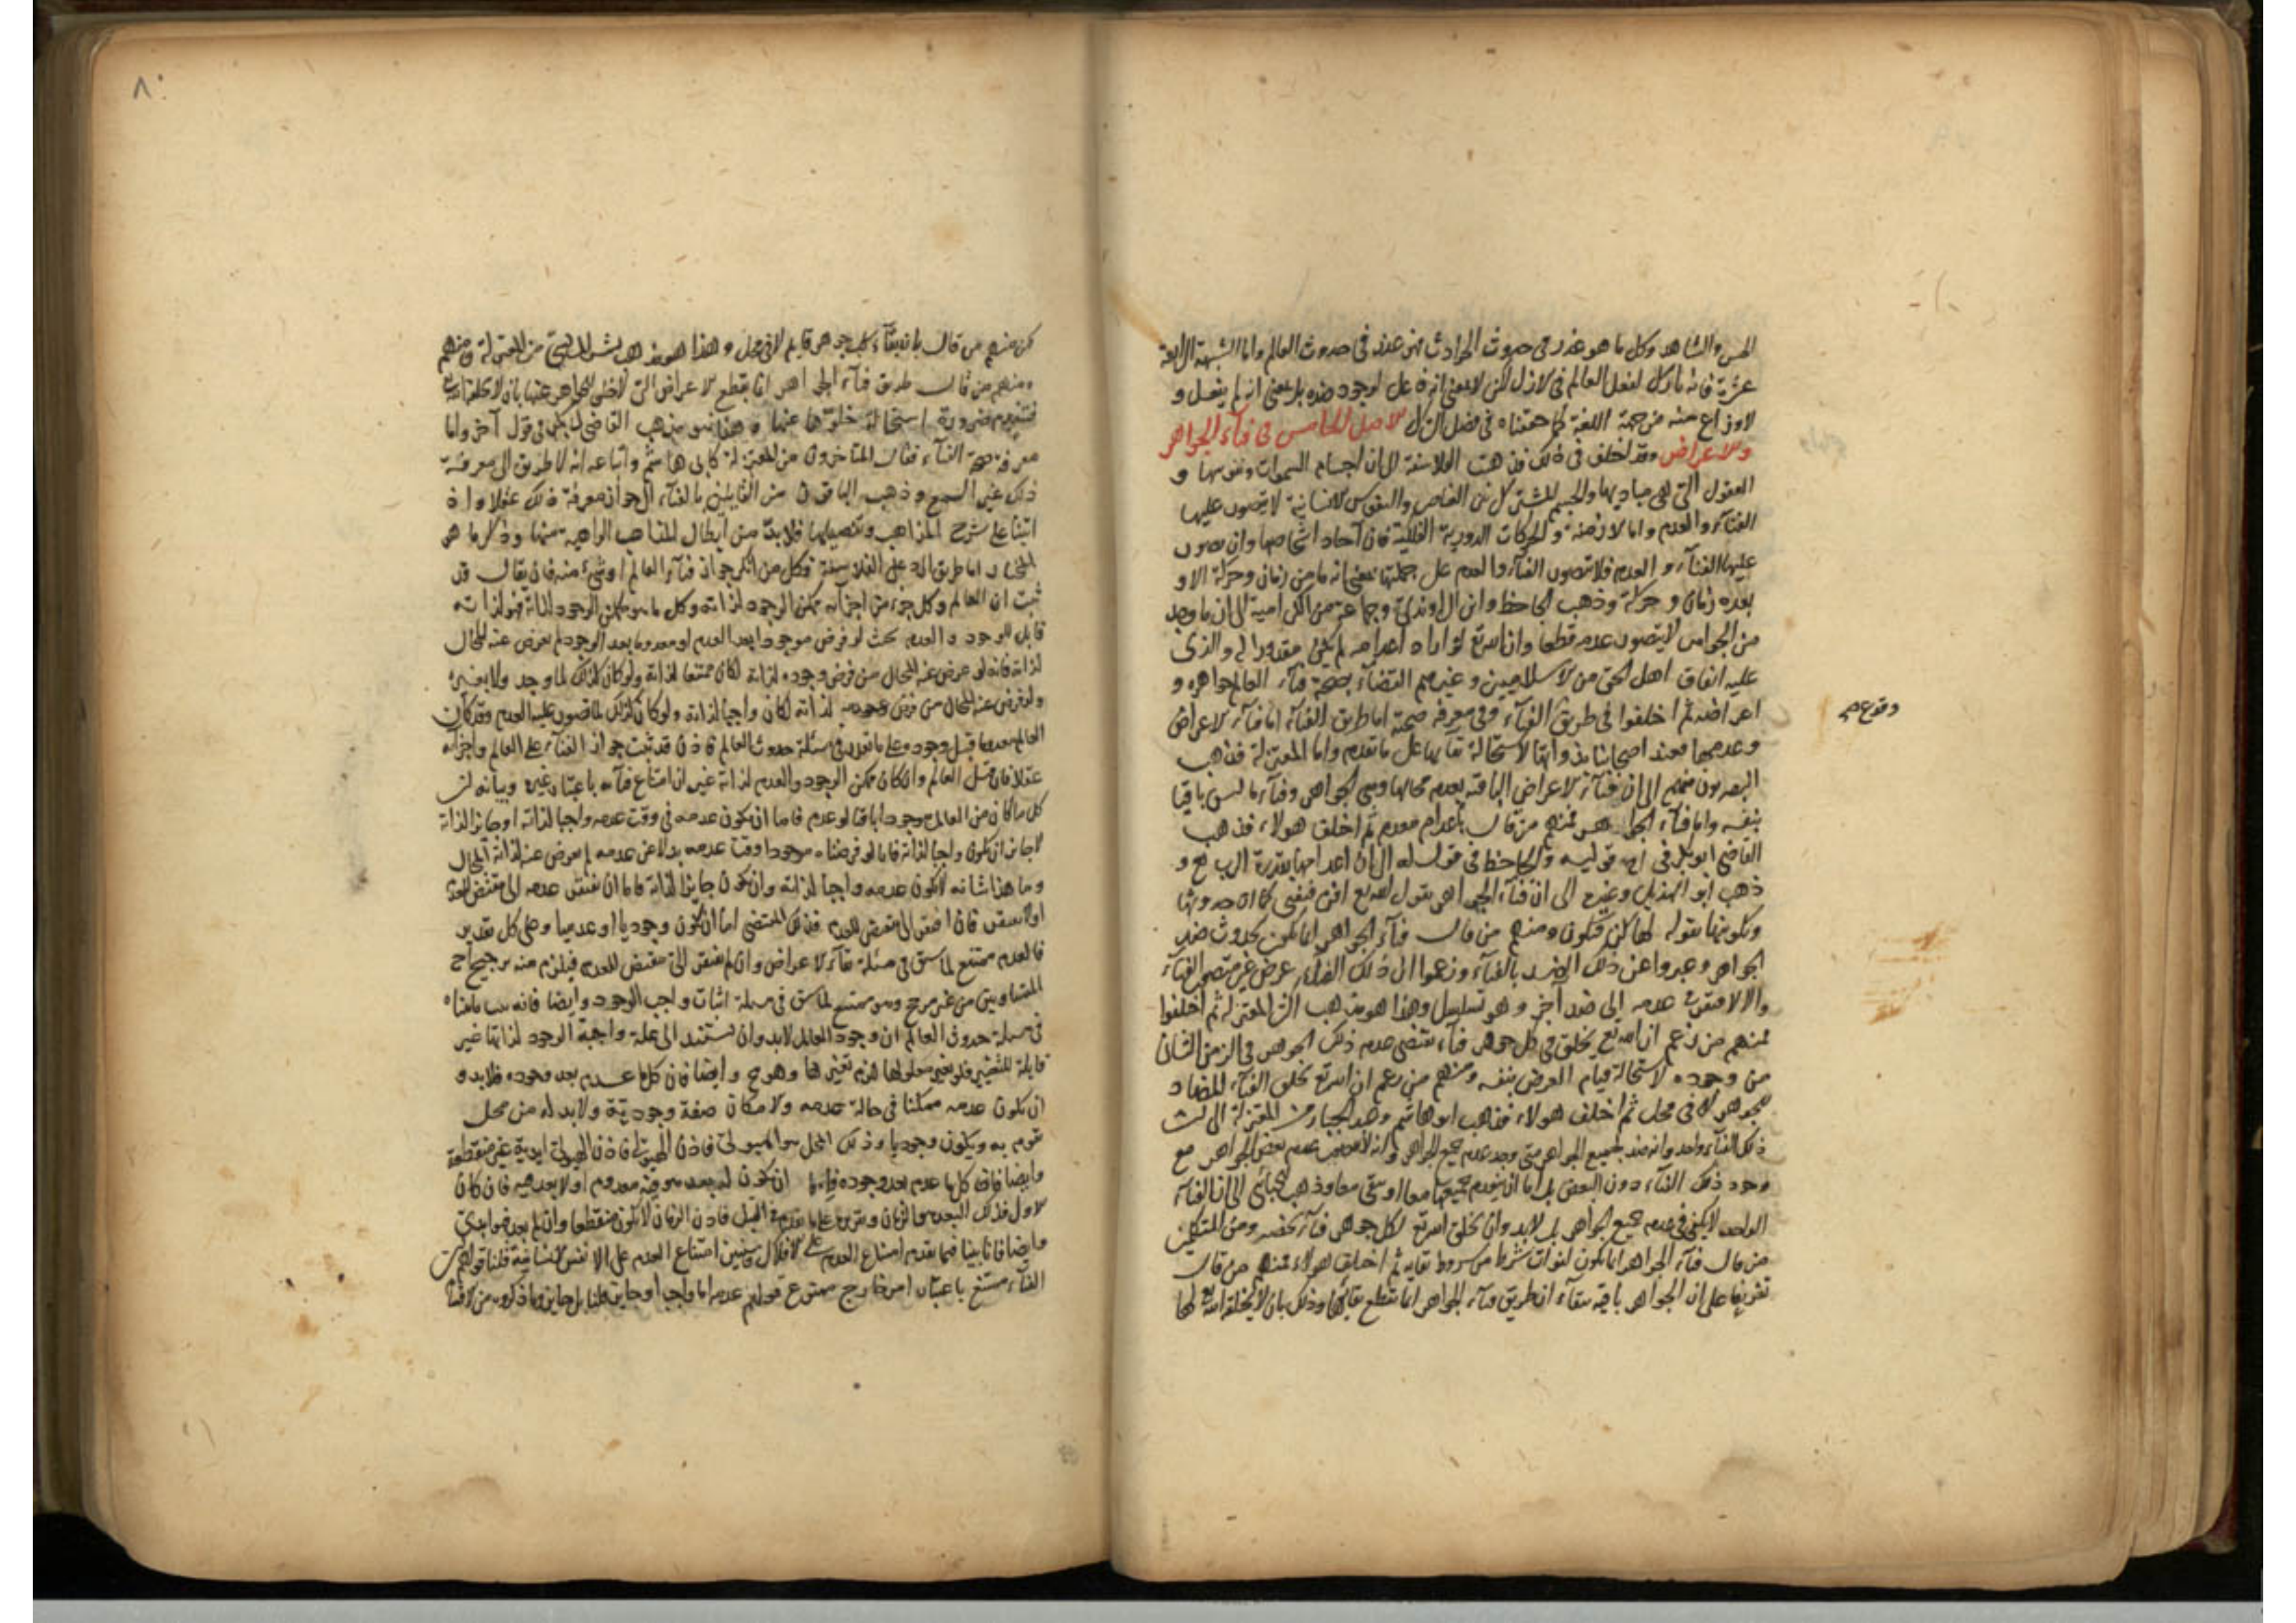 الحس والشاهد وكل ما هو عذر في حدوث الحوادث فهو عذر في حدوث العالم واما الشبهة الرابعة
عشرة فانه تارك لفعل العالم في الازل لكن لا بمعنى انه فاعل لوجود ضده بل بمعنى انه لم يفعل و
لا نزاع منه من جهة اللغة كما حققناه في فصل الترك الاصل الخامس في فناء الجواهر
والاعراض وقد اختلف في ذلك فذهبت الفلاسفة الى ان اجسام السموات ونفوسها و
العقول التي هي مباديها والجسم المشترك بين العناصر والنفوس الانسانية لا يتصور عليها
الفناء والعدم واما الازمنة والحركات الدورية الفلكية فان آحاد اشخاصها وان تصور
عليها الفناء والعدم فلا يتصور الفناء والعدم على جملتها بمعنى انه ما من زمان وحركة الا و
بعده زمان وحركة وذهب الجاحظ وابن الراوندي وجماعة من الكرامية الى ان ما وجد
من الجواهر لا يتصور عدمه قطعا وان الله تع لو اراد اعدامه لم يكن مقدورا له والذي
عليه اتفاق اهل الحق من الاسلاميين وغيرهم القضاء بصحة فناء العالم جواهره و
اعراضه ثم اختلفوا في طريق الفناء وفي معرفة صحته اما طريق الفناء اما فناء الاعراض
وقوع صح
وعدمها فعند اصحابنا بذواتها لاستحالة بقائها على ما تقدم واما المعتزلة فذهب
البصريون منهم الى ان فناء الاعراض الباقية بعدم محالها وهي الجواهر وفناء ما ليس باقيا
بنفسه واما فناء الجواهر فمنهم من قال باعدام معدم ثم اختلف هولاء فذهب
القاضي ابو بكر في احد قوليه والجاحظ في قول له الى ان اعدامها بقدرة الرب تع و
ذهب ابو الهذيل وغيره الى ان فناء الجواهر بقول الله تع افن فيفنى كما ان حدوثها
وتكونها بقوله لها كن فتكون ومنهم من قال فناء الجواهر انما يكون بحدوث ضد
الجواهر وعبروا عن ذلك الضد بالفناء وزعموا ان ذلك الفناء عرض غير متصور الفناء
والا لافتقر في عدمه الى ضد آخر وهو تسلسل وهذا هو مذهب اكثر المعتزلة ثم اختلفوا
فمنهم من زعم ان الله تع يخلق في كل جوهر فناء يقتضى عدم ذلك الجوهر في الزمن الثاني
من وجوده لاستحالة قيام العرض بنفسه ومنهم من زعم ان الله تع يخلق الفناء المضاد
للجوهر لا في محل ثم اختلف هولاء فذهب ابو هاشم وعبد الجبار من المعتزلة الى ان
ذلك الفناء واحد وانه ضد لجميع الجواهر متى وجد عدم جميع الجواهر وانه لا يتصور عدم بعض الجواهر مع
وجود ذلك الفناء دون البعض بل اما ان ينعدم جميعها معا او يبقى معا وذهب الجبائي الى ان الفناء
الواحد لا يكفي في عدم جميع الجواهر بل لابد وان يخلق الله تع لكل جوهر فناء يخصه ومن المتكلمين
من قال فناء الجواهر انما يكون لفوات شرط من شروط بقائه ثم اختلف هولاء فمنهم من قال
تفريعا على ان الجواهر باقية ببقاء ان طريق فناء الجواهر انما بقطع بقائها وذلك بان لا يخلقه الله تع لها
٨٠
لكن منهم من قال بان بقاء كل جوهر قائم لا في محل وهذا هو مذهب بشر المريسي من المعتزلة ومنهم
ومنهم من قال طريق فناء الجواهر انما بقطع الاعراض التي لا تخلى الجواهر عنها بان لا يخلقها الله
فتنعدم ضرورة استحالة خلوها عنها وهذا هو مذهب القاضي ابي بكر في قول آخر واما
معرفة صحة الفناء فقال المتاخرون من المعتزلة كابي هاشم واتباعه انه لا طريق الى معرفة
ذلك غير السمع وذهب الباقون من القايلين بالفناء الى جواز معرفة ذلك عقلا واذ
اتينا على شرح المذاهب وتفصيلها فلابد من ابطال المذاهب الواهية منها وذكر ما هو
المختار اما طريق الرد على الفلاسفة فكل من انكر جواز فناء العالم او شيء منه فان يقال قد
ثبت ان العالم وكل جزء من اجزائه ممكن الوجود لذاته وكل ما هو ممكن الوجود لذاته فهو لذاته
قابل للوجود والعدم بحيث لو فرض موجودا بعد العدم او معدوما بعد الوجود لم يعرض عنه المحال
لذاته فانه لو عرض عنه المحال من فرض وجوده لذاته لكان ممتنعا لذاته ولو كان كذلك لما وجد ولا بغيره
ولو فرض عنه المحال من فرض عدمه لذاته لكان واجبا لذاته ولو كان كذلك لما تصور عليه العدم وقد كان
العالم معدوما قبل وجوده على ما تقدم في مسئلة حدوث العالم فاذن قد ثبت جواز الفناء على العالم واجزائه
عقلا فان قيل العالم وان كان ممكن الوجود والعدم لذاته غير ان امتناع فنائه باعتبار غيره وبيانه ان
كل ما كان من العالم موجودا باقيا لو عدم فاما ان يكون عدمه في وقت عدمه واجبا لذاته او جايزا لذاته
لا جايز ان يكون واجبا لذاته فانا لو فرضناه موجودا وقت عدمه بدلا عن عدمه لم يعرض عنه لذاته المحال
وما هذا شانه لا يكون عدمه واجبا لذاته وان كان جايزا لذاته فاما ان يفتقر عدمه الى مقتض للعدم
او لا يفتقر فان افتقر الى مقتض للعدم فذلك المقتضى اما ان يكون وجوديا او عدميا وعلى كل تقدير
فالعدم ممتنع لما سبق في مسئلة بقاء الاعراض وان لم يفتقر الى مقتض للعدم فيلزم منه ترجيح احد
المتساويين من غير مرجح وهو ممتنع لما سبق في مسئلة اثبات واجب الوجود وايضا فانه قد بينا
في مسئلة حدوث العالم ان وجود العالم لابد وان يستند الى علة واجبة الوجود لذاتها غير
قابلة للتغير فلو تغير معلولها لزم تغيرها وهو مح وايضا فان كل ما عدم بعد وجوده فلابد و
ان يكون عدمه ممكنا في حالة عدمه والامكان صفة وجودية ولابد له من محل
تقوم به ويكون وجوديا وذلك المحل هو الهيولى فاذن الهيولى ابدية غير منقطعة
وايضا فان كل ما عدم بعد وجوده فاما ان يكون له بعد هو فيه معدوم او لا بعد فيه فان كان
الاول فذلك البعد هو الزمان وتقريره على ما تقدم في القبل فاذن الزمان لا يكون منقطعا وان لم يعدم فهو ابدي
وايضا فانا بينا فيما تقدم امتناع العدم على الافلاك وسنبين امتناع العدم على الانفس الانسانية قلنا قولهم ان
الفناء ممتنع باعتبار امر خارج ممنوع قولهم عدمه اما واجب او جايز قلنا بل جايز وما ذكروه من الاقسام